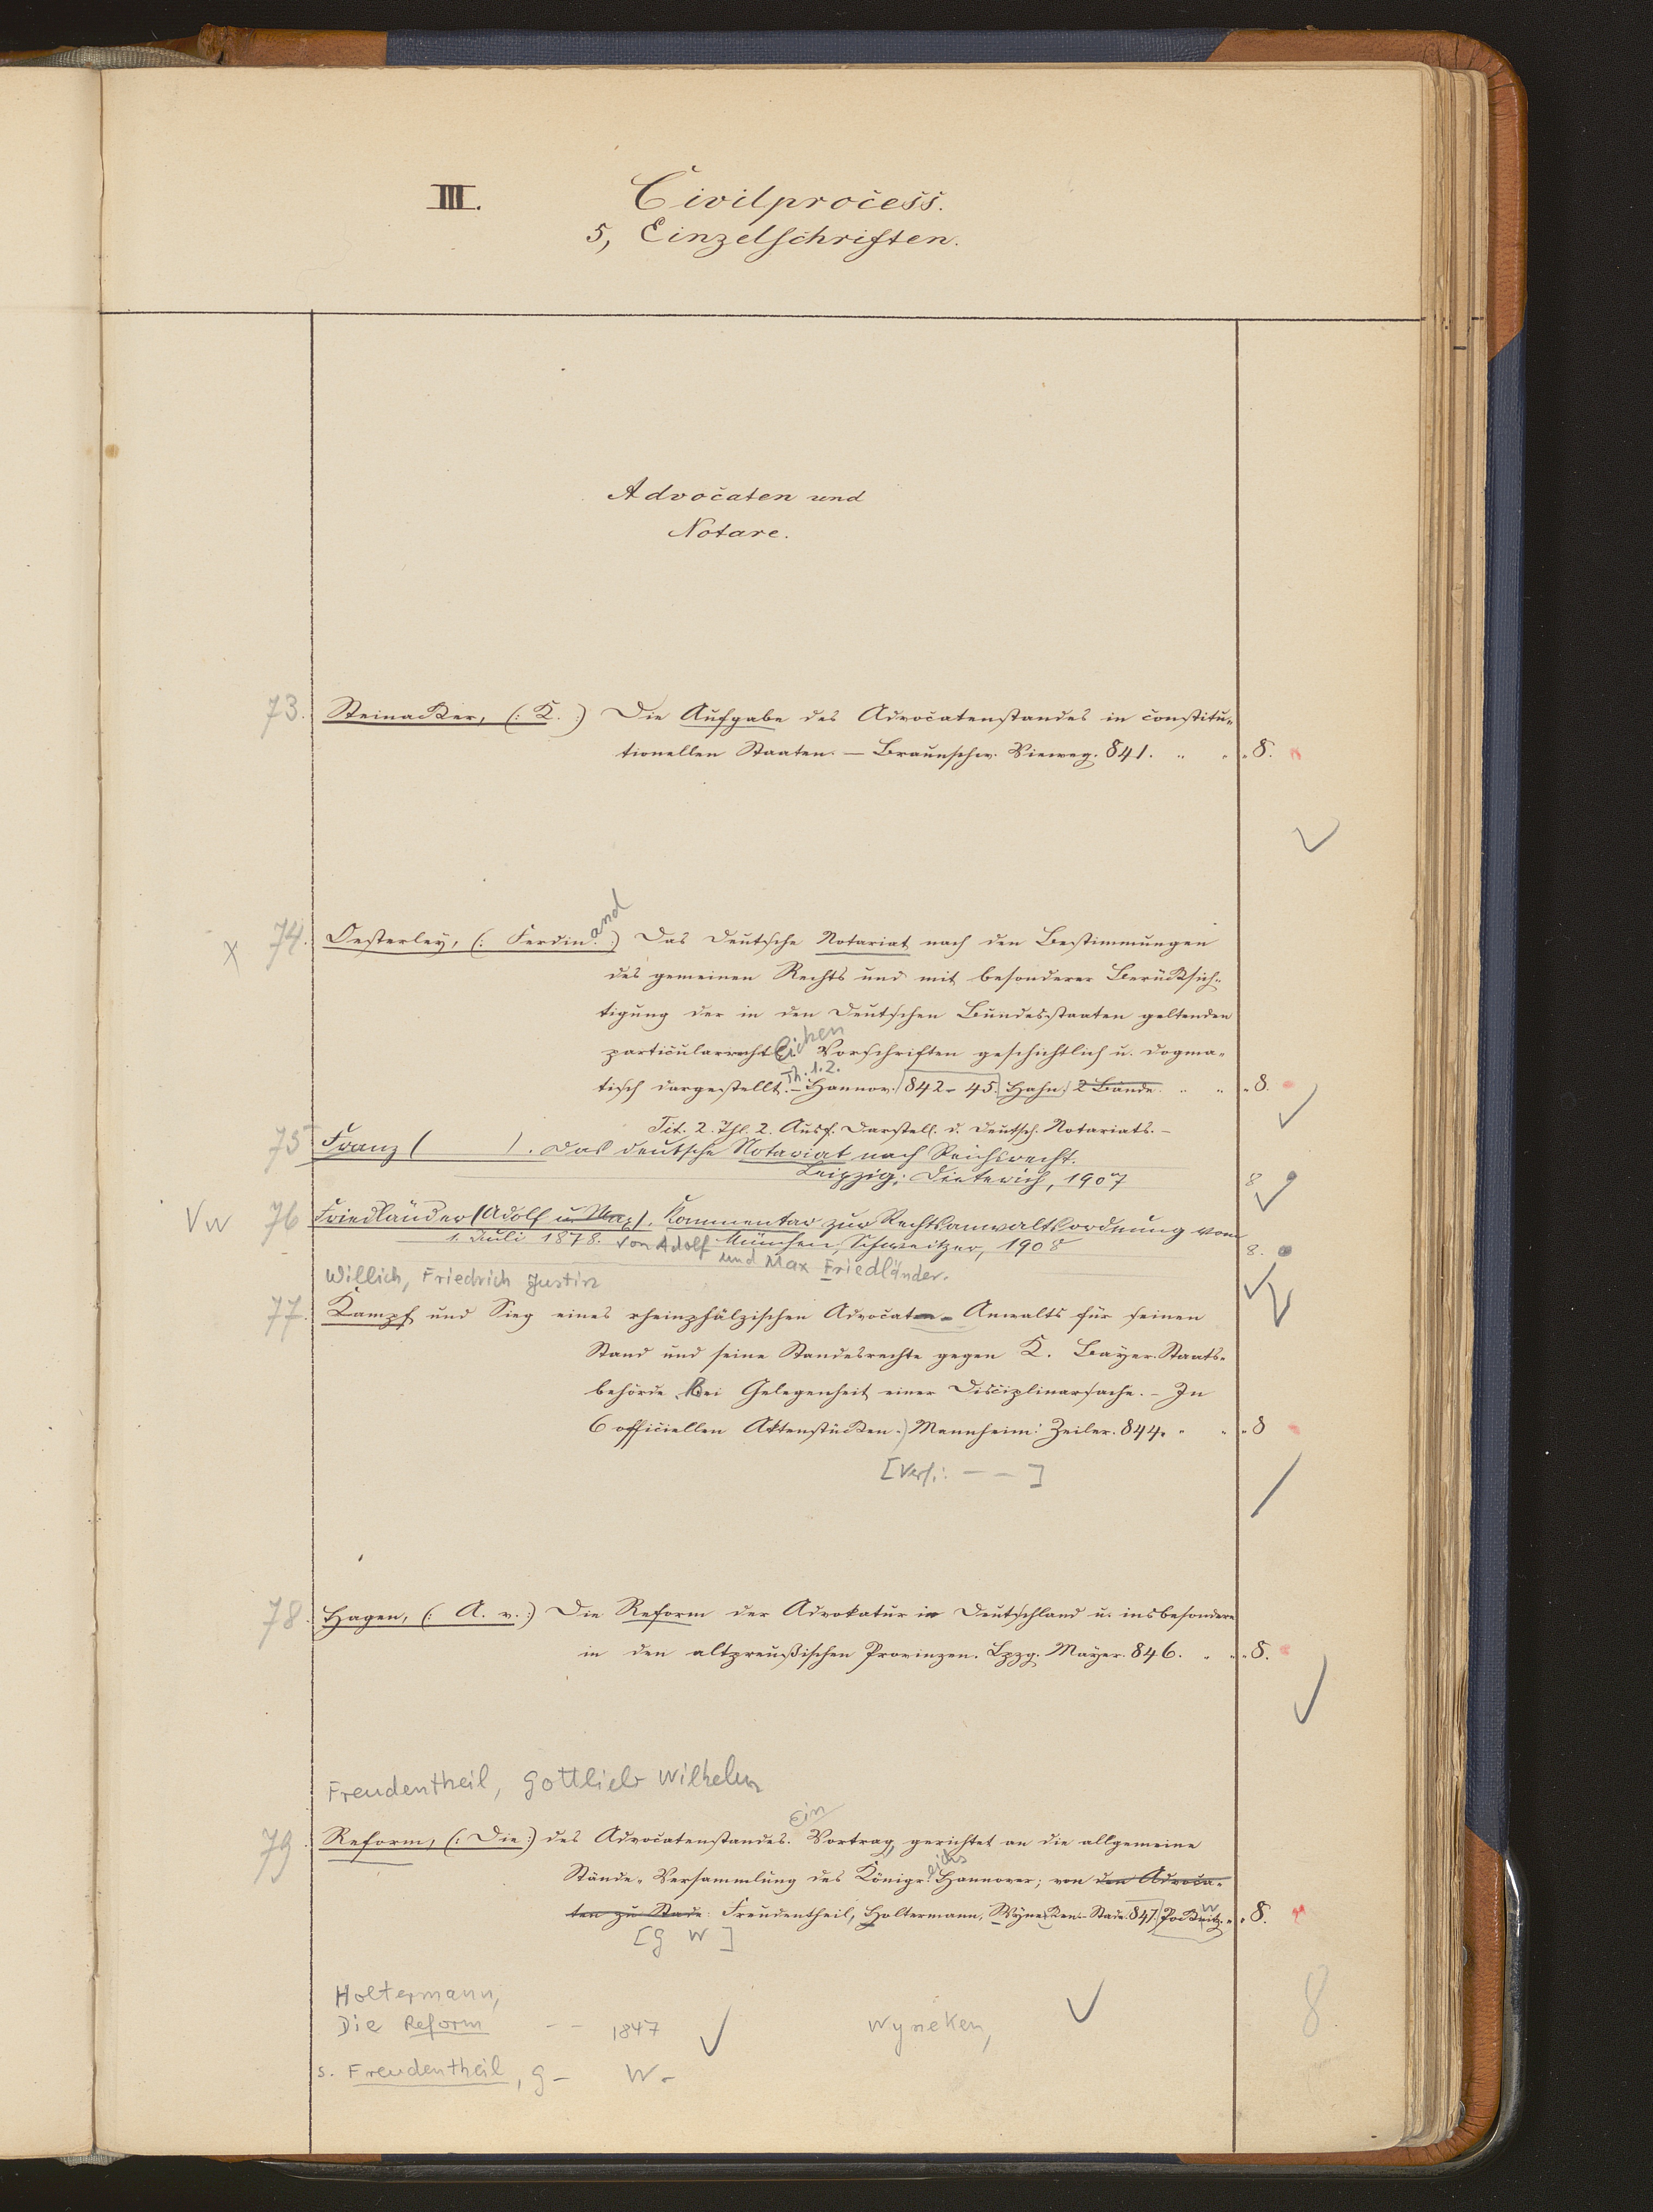 III. Civilprocess.
5, Einzelschriften.
Advocaten und
Notare.
73. Steinacker, (: K. :) Die Aufgabe des Advocatenstandes in constitu-
tionellen Staaten. — Braunschw. Vieweg. 841. " " " 8.
and
x 74. Oesterley, (: Ferdin. :) Das Deutsche Notariat nach den Bestimmungen
des gemeinen Rechts und mit besonderer Berücksich-
tigung der in den Deutschen Bundesstaaten geltenden
particularrechtlichen Vorschriften geschichtlich u. dogma-
Th. 1.2.
tisch dargestellt. – Hannov. 842-45. Hahn. 2 Bände. " " " 8.
Tit. 2. Thl. 2. Ausf. Darstell. d. Deutsch. Notariats. –
75 Franz ( ). Das deutsche Notariat nach Reichsrecht.
Leipzig: Dieterich, 1907 8
Vw 76 Friedländer (Adolf u. Max). Kommentar zur Rechtsanwaltsordnung vom
1. Juli 1878. von Adolf München, Schweitzer, 1908 8.
und Max Friedländer.
Willich, Friedrich Justin
77. Kampf und Sieg eines rheinpfälzischen Advocaten-Anwalts für seinen
Stand und seine Standesrechte gegen K. Bayer. Staats-
behörde bei Gelegenheit einer Disciplinarsache. – In
6 officiellen Aktenstücken. Mannheim: Zeiler. 844. " " " 8
[Verf.: — — ]
78. Hagen, (: A. v. :) Die Reform der Advokatur in Deutschland u. insbesondere
in den altpreußischen Provinzen. Lpzg. Mayer. 846. " " " 8.
Freudentheil, Gottlieb Wilhelm
Ein
79. Reform, (: Die :) des Advocatenstandes. Vortrag, gerichtet an die allgemeine
eichs
Stände-Versammlung des Königr. Hannover; von den Advoca-
ten zu Stade: Freudentheil, Holtermann, Wyneken. – Stade. 847. Pockwitz. " " 8.
[G W ]
Holtermann,
Die Reform — — 1847 Wyneken,
8.
s. Freudentheil, G – W –